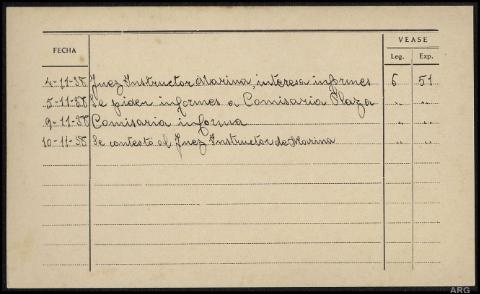 VEASE
FECHA
Leg. Exp.
4-11-38 Juez Instructor Marina, interesa informes 6 51
5-11-38 Se piden informes a Comisaria Plaza " "
9-11-38 Comisaria informa " "
10-11-38 Se contestó al Juez Instructor de Marina " "
ARG